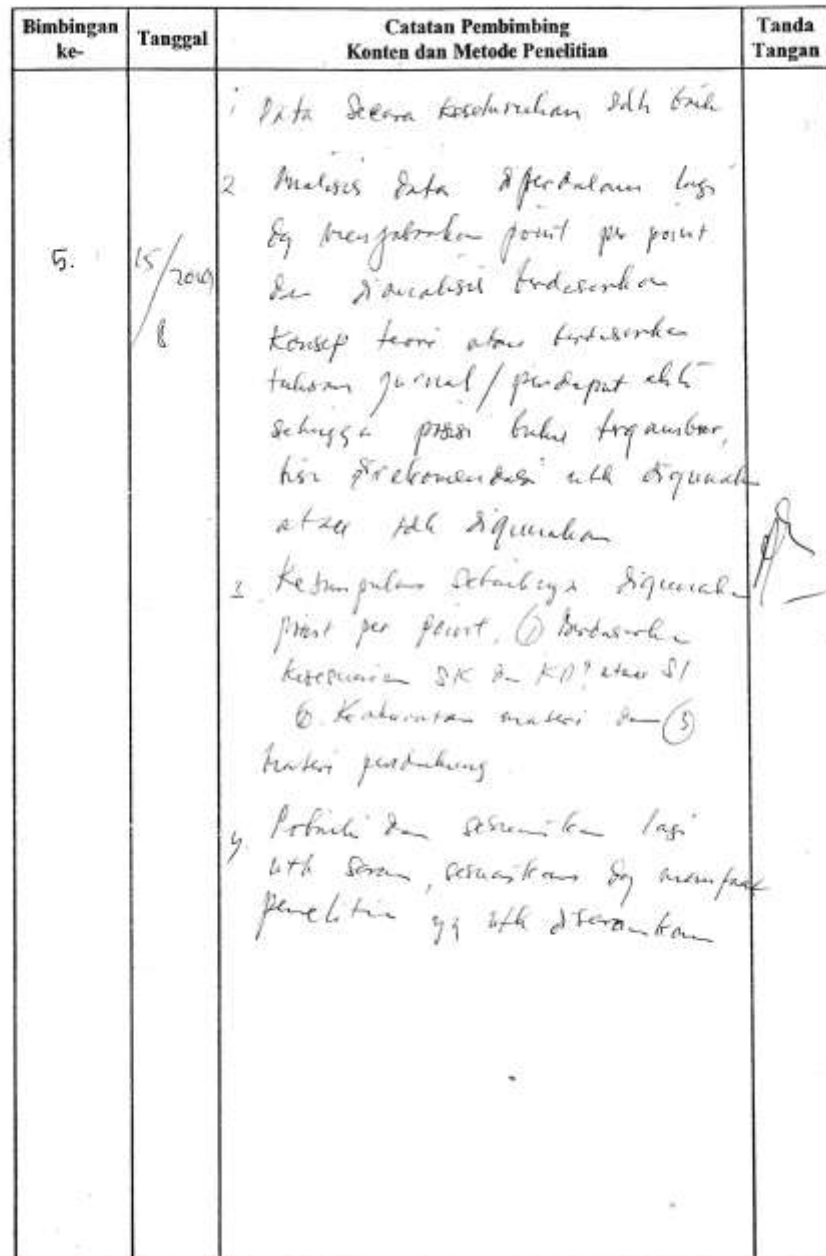 Bimbingan ke-
Tanggal
Catatan Pembimbing
Konten dan Metode Penelitian
Tanda Tangan
5.
15/8
1 Data Secara keseluruhan sdh baik
2 Analisis data diperdalam lagi
dg menjabarkan point per point
dan dianalisis berdasarkan
Konsep teori atau berdasarkan
tulisan jurnal / pendapat ahli
sehingga posisi buku tergambar,
direkomendasi utk digunakan
atau tdk digunakan
3 Kesimpulan sebaiknya digunakan
point per point. ① Berdasarkan
kesesuaian SK dan KD atau SI
Keakuratan materi dan ③
materi pendukung
4 dan sesuaikan lagi
utk saran, sesuaikan dg
penelitian yg utk disarankan